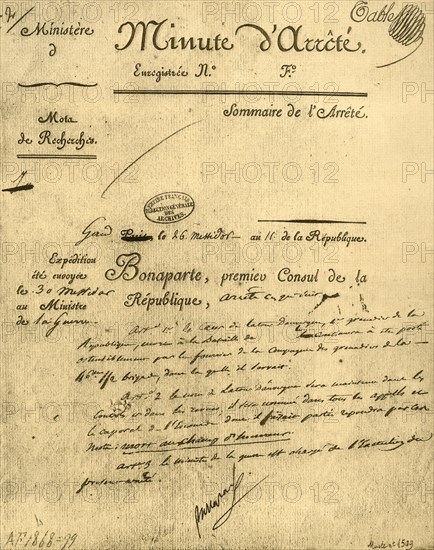 Table
Ministère
Minute d'Arrêté.
Enregistrée N.° F.°
Sommaire de l'Arrêté.
Nota
de Recherches.
ARCHIVES
Gand Paris, le 26 Messidor au 11e de la République.
Expédition
été envoyée
le 30 Messidor
au Ministre
de la Guerre.
Bonaparte, premier Consul de la
République, arrête ce qui suit
Art. 1er le cœur de latour d'auvergne, 1er grenadier de la
République, à la Bataille de a été porté
ostensiblement par le fourrier de la Compagnie des grenadiers de la
46ème 1/2 brigade, dans laquelle il servait.
Art. 2 le nom de Latour d'auvergne sera maintenu dans les
contrôles et dans les revues, il sera nommé dans tous les appels et
le caporal de l'Escouade dont il faisait partie répondra par ces
mots: mort au champ d'honneur
Art. 3 le ministre de la guerre est chargé de l'exécution du
présent arrêté.
AF. 1868=19